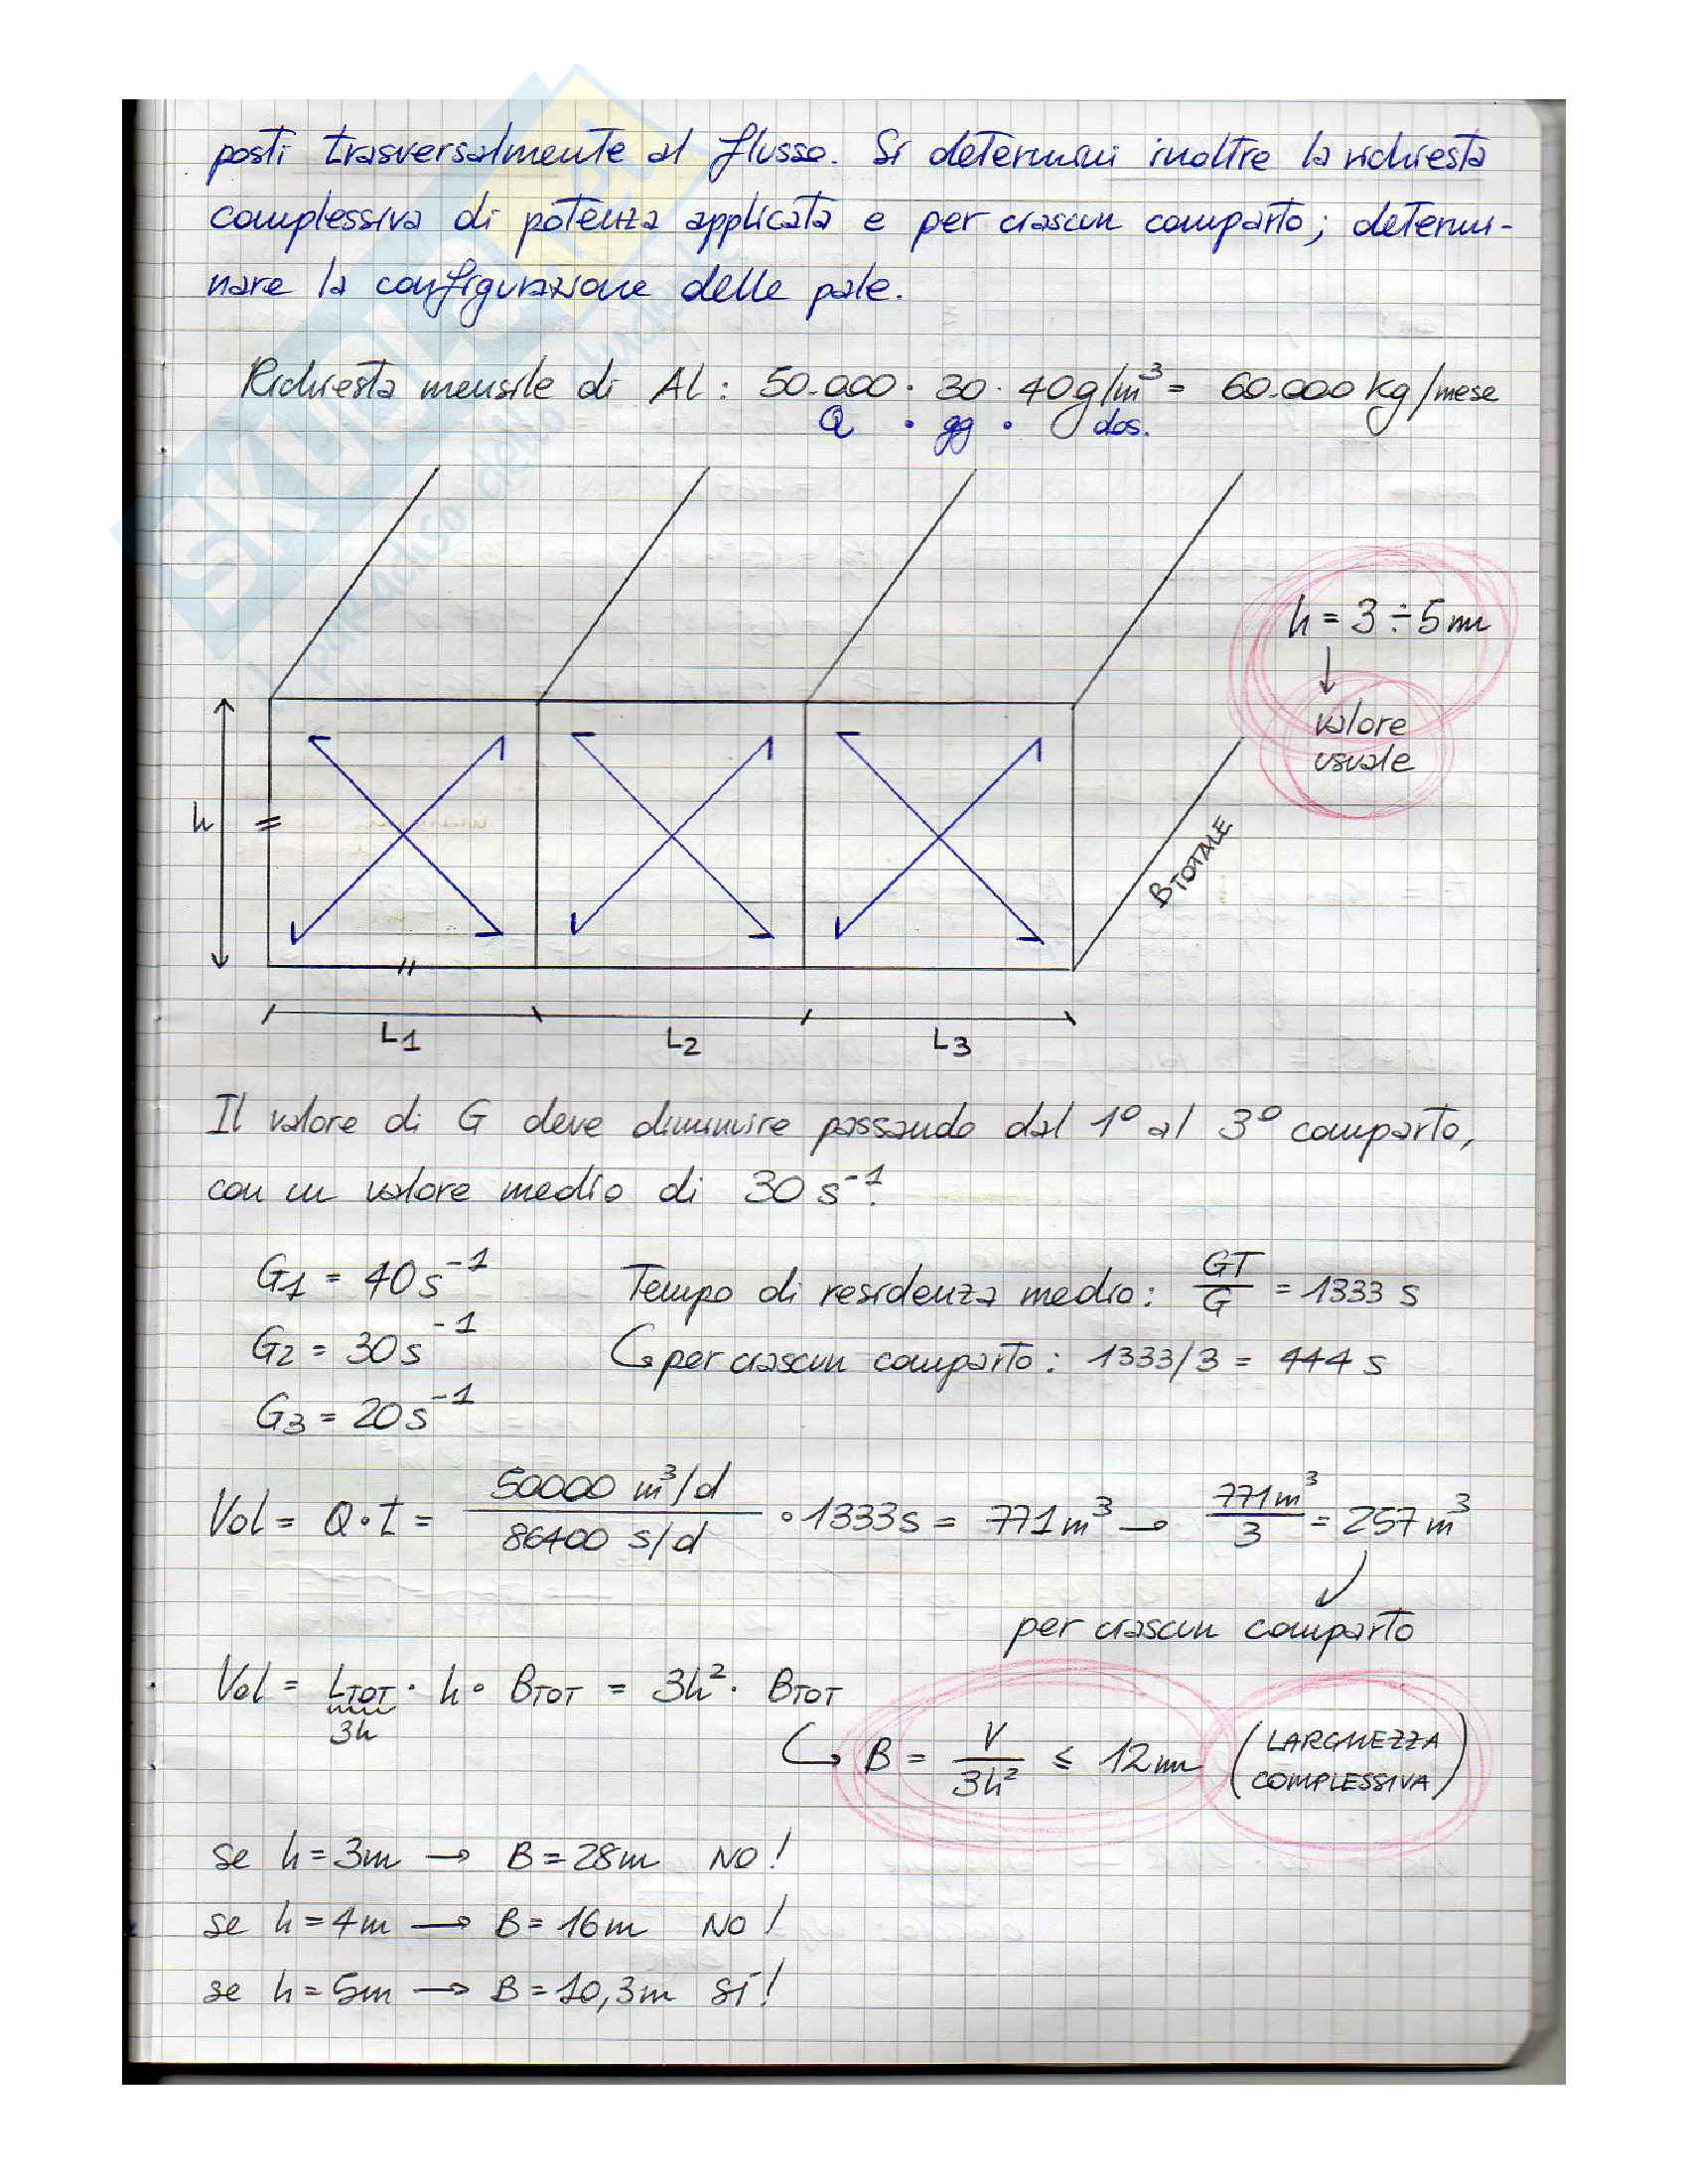 posti trasversalmente al flusso. Si determini inoltre la richiesta
complessiva di potenza applicata e per ciascun comparto; determi-
nare la configurazione delle pale.
Richiesta mensile di Al: 50.000 · 30 · 40g/m³ = 60.000 Kg/mese
Q · gg · dos.
h = 3 ÷ 5 m
↓
valore
usuale
h
B TOTALE
L1 L2 L3
Il valore di G deve diminuire passando dal 1° al 3° comparto,
con un valore medio di 30 s⁻¹.
G1 = 40 s⁻¹ Tempo di residenza medio: GT/G = 1333 s
G2 = 30 s⁻¹ ↳ per ciascun comparto: 1333/3 = 444 s
G3 = 20 s⁻¹
Vol = Q · t = 50000 m³/d / 86400 s/d · 1333 s = 771 m³ → 771 m³/3 = 257 m³
per ciascun comparto
Vol = LTOT · h · BTOT = 3h² · BTOT
3h
↳ B = V/3h² ≤ 12 m (LARGHEZZA COMPLESSIVA)
se h = 3m → B = 28m NO!
se h = 4m → B = 16m NO!
se h = 5m → B = 10,3m SÌ!
SKUOLA.net
il paradiso dello studente